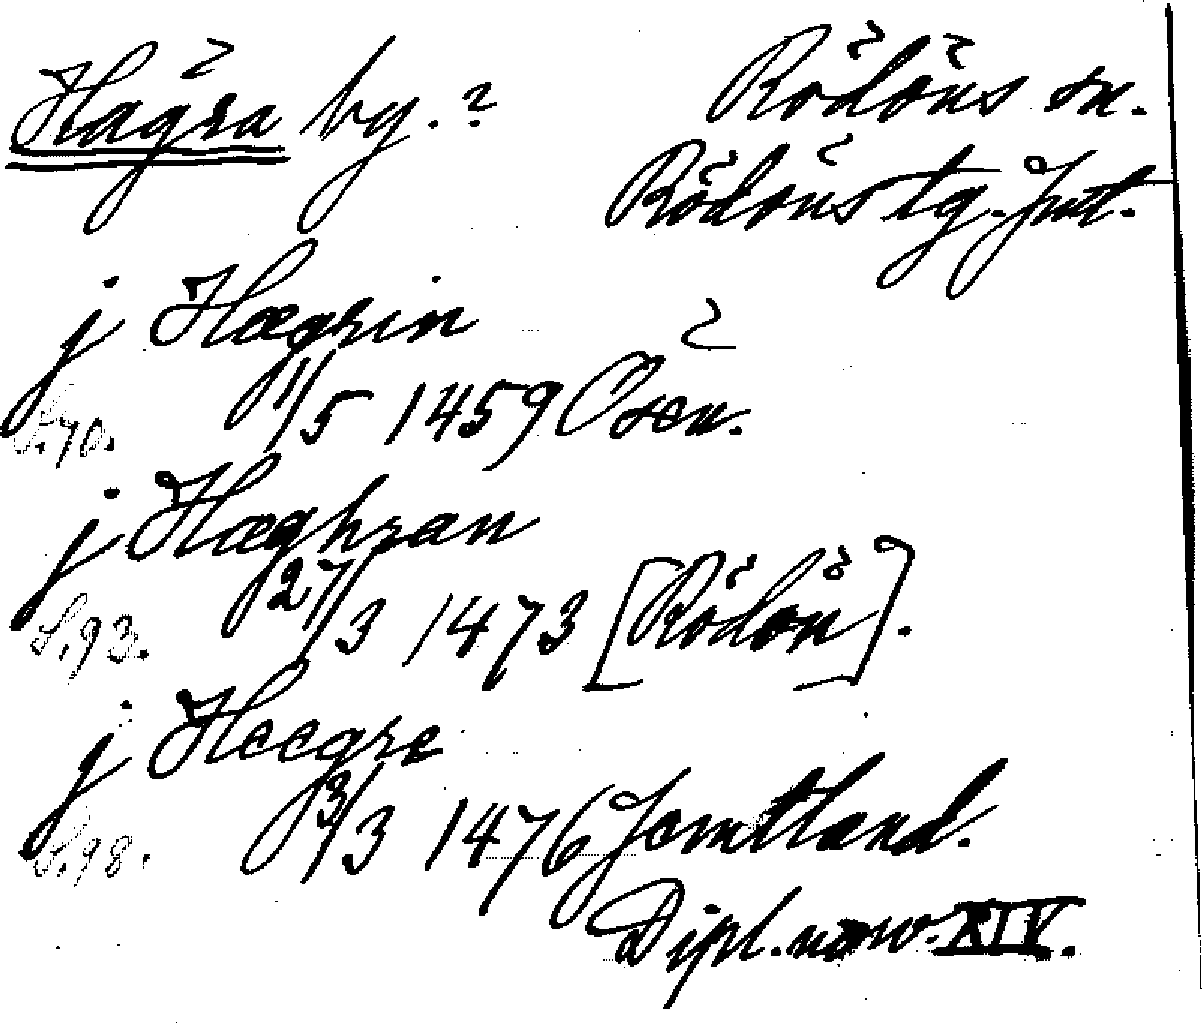 Hågra by.? Rödöns sn.
Rödöns tg. Jmt.
j Hægrin
S.70. 1/5 1459 Osen.
j Hæghran
S.93. 27/3 1473 [Rödön].
j Heegre
S.98. 3/3 1476 Jemtland.
Dipl. norv. XIV.